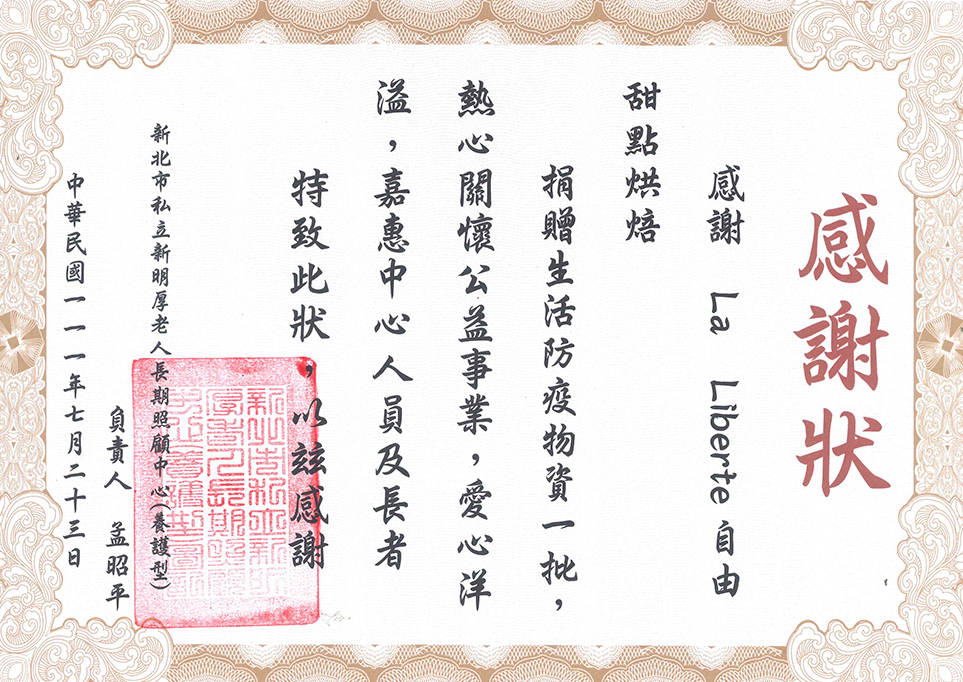 感謝狀
感謝 La Liberte 自由
甜點烘焙
捐贈生活防疫物資一批，
熱心關懷公益事業，愛心洋
溢，嘉惠中心人員及長者
特致此狀，以茲感謝
新北市私立新明厚老人長期照顧中心(養護型)
負責人 孟昭平
中華民國一一一年七月二十三日